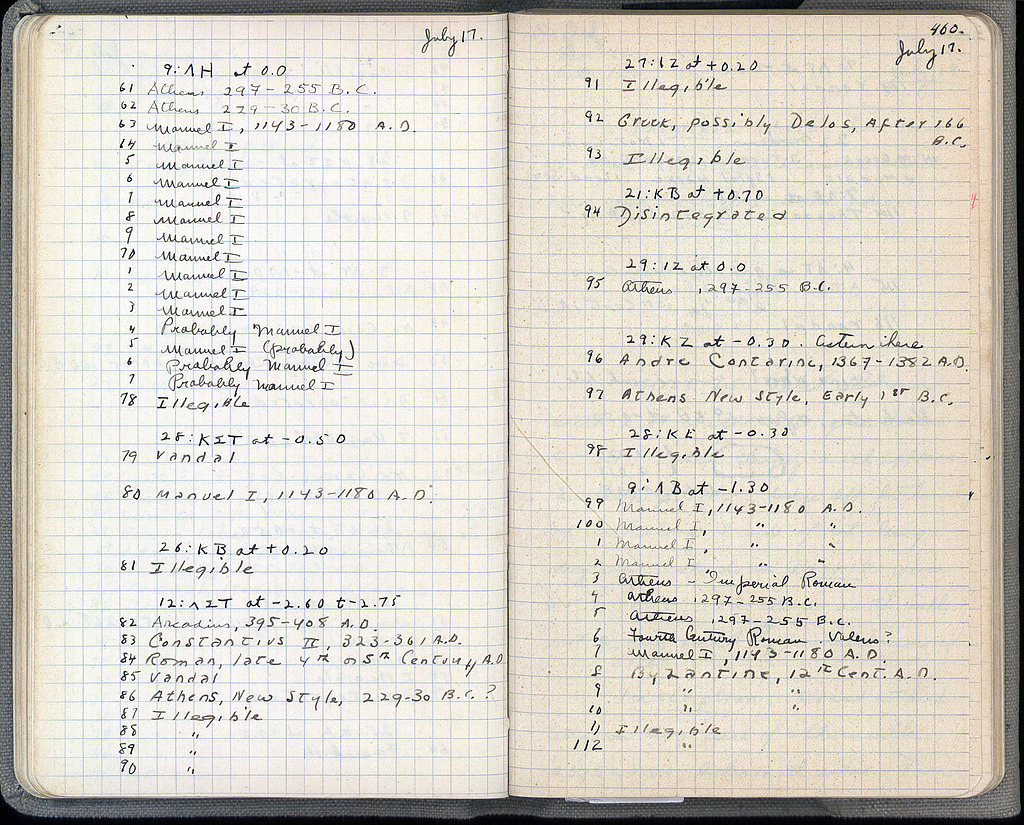 July 17.
9:ΛH at 0.0
61 Athens 297-255 B.C.
62 Athens 229-30 B.C.
63 Manuel I, 1143-1180 A.D.
64 Manuel I
5 Manuel I
6 Manuel I
7 Manuel I
8 Manuel I
9 Manuel I
70 Manuel I
1 Manuel I
2 Manuel I
3 Manuel I
4 Probably Manuel I
5 Manuel I (probably)
6 Probably Manuel I
7 Probably Manuel I
78 Illegible
28:KΣT at -0.50
79 Vandal
80 Manuel I, 1143-1180 A.D.
26:KB at +0.20
81 Illegible
12:ΛΣT at -2.60 t -2.75
82 Arcadius, 395-408 A.D.
83 Constantius II, 323-361 A.D.
84 Roman, late 4th or 5th Century A.D
85 Vandal
86 Athens, New Style, 229-30 B.C.?
87 Illegible
88 "
89 "
90 "
460.
July 17.
27:IZ at +0.20
91 Illegible
92 Greek, possibly Delos, After 166
B.C.
93 Illegible
21:KB at +0.70
94 Disintegrated
29:IZ at 0.0
95 Athens , 297-255 B.C.
29:KZ at -0.30.
96 Andre Contarini, 1367-1382 A.D.
97 Athens New Style, Early 1st B.C.
28:KE at -0.30
98 Illegible
9:ΛB at -1.30
99 Manuel I, 1143-1180 A.D.
100 Manuel I, " "
1 Manuel I, " "
2 Manuel I " "
3 Athens - Imperial Roman
4 Athens , 297-255 B.C.
5 Athens , 297-255 B.C.
6 Fourth Century Roman. Valens?
7 Manuel I, 1143-1180 A.D.
8 Byzantine, 12th Cent. A.D.
9 " "
10 " "
11 Illegible
112 "